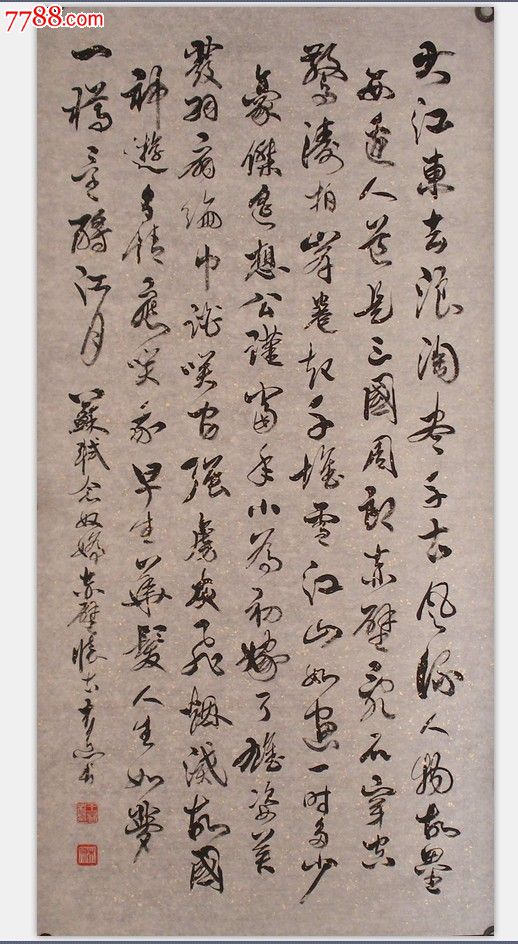 7788.com
大江東去浪淘盡千古風流人物故壘
西邊人道是三國周郎赤壁亂石穿空
驚濤拍岸卷起千堆雪江山如畫一時多少
豪傑遙想公瑾當年小喬初嫁了雄姿英
發羽扇綸巾談笑間强虜灰飛烟滅故國
神遊多情應笑我早生華髮人生如夢
一樽還酹江月 蘇軾念奴嬌赤壁懷古 書